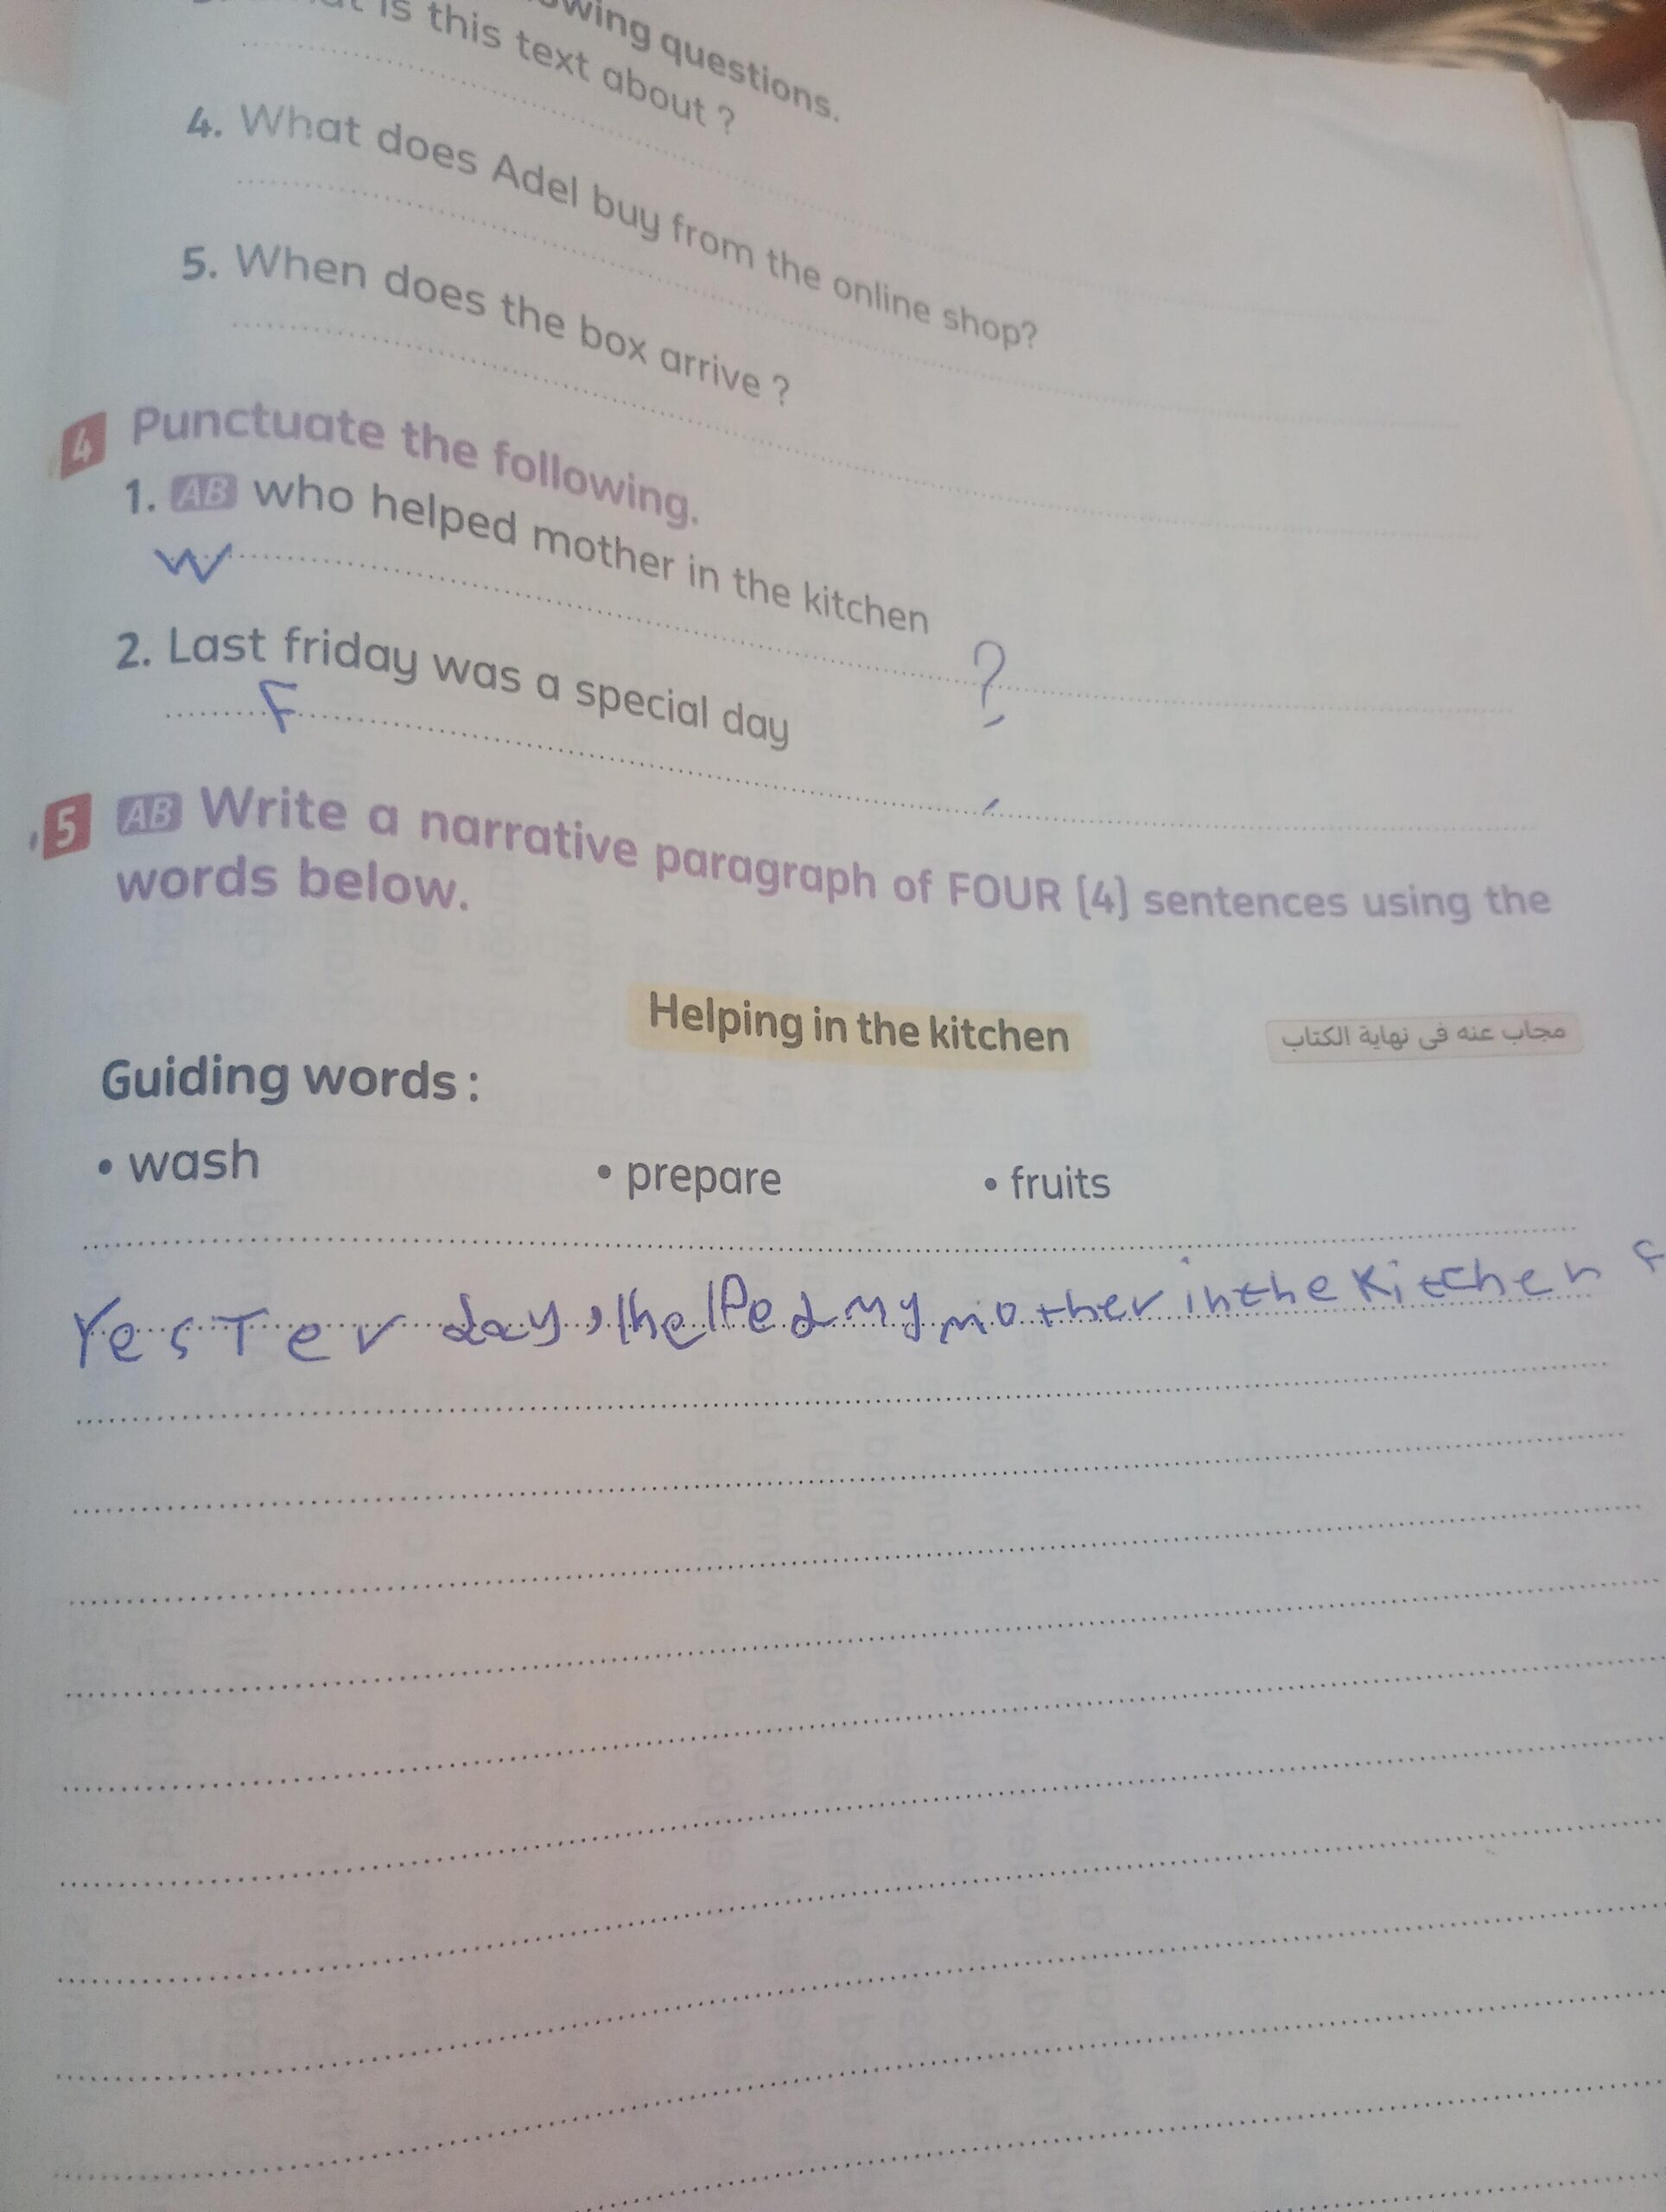 owing questions.
is this text about ?
4. What does Adel buy from the online shop?
5. When does the box arrive ?
4 Punctuate the following.
1. AB who helped mother in the kitchen
W ?
2. Last friday was a special day
F .
5 AB Write a narrative paragraph of FOUR (4) sentences using the
words below.
Helping in the kitchen
مجاب عنه فى نهاية الكتاب
Guiding words :
• wash • prepare • fruits
YesTer day, I helped my mother in the Kitchen